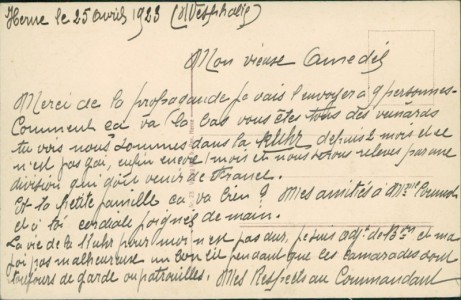 Herne le 25 avril 1923 (Westphalie)
Mon vieux Amedée
Merci de la propagande je vais l'envoyer à 9 personnes-
Comment ça va là bas vous êtes tous des veinards
tu vois nous sommes dans la Ruhr depuis 2 mois et ce
n'est pas gai, enfin encore 1 mois et nous serons relevés par une
division qui doit venir de France.
Et la petite famille ça va bien ? Mes amitiés à Mme
et à toi cordiale poignée de main.
La vie de la Ruhr pour moi n'est pas dur, je suis adjt de Bon et ma
foi pas malheureux un bon lit pendant que les camarades sont
toujours de garde ou patrouilles. Mes Respects au Commandant